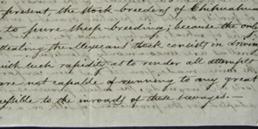 present the Stock breeders of Chihuahua
to pure sheep-breeding; because the only
stealing the Mexicans
stock consists in driving
with such rapidity as to render all attempts
are not capable of running to any great
to the inroads of these